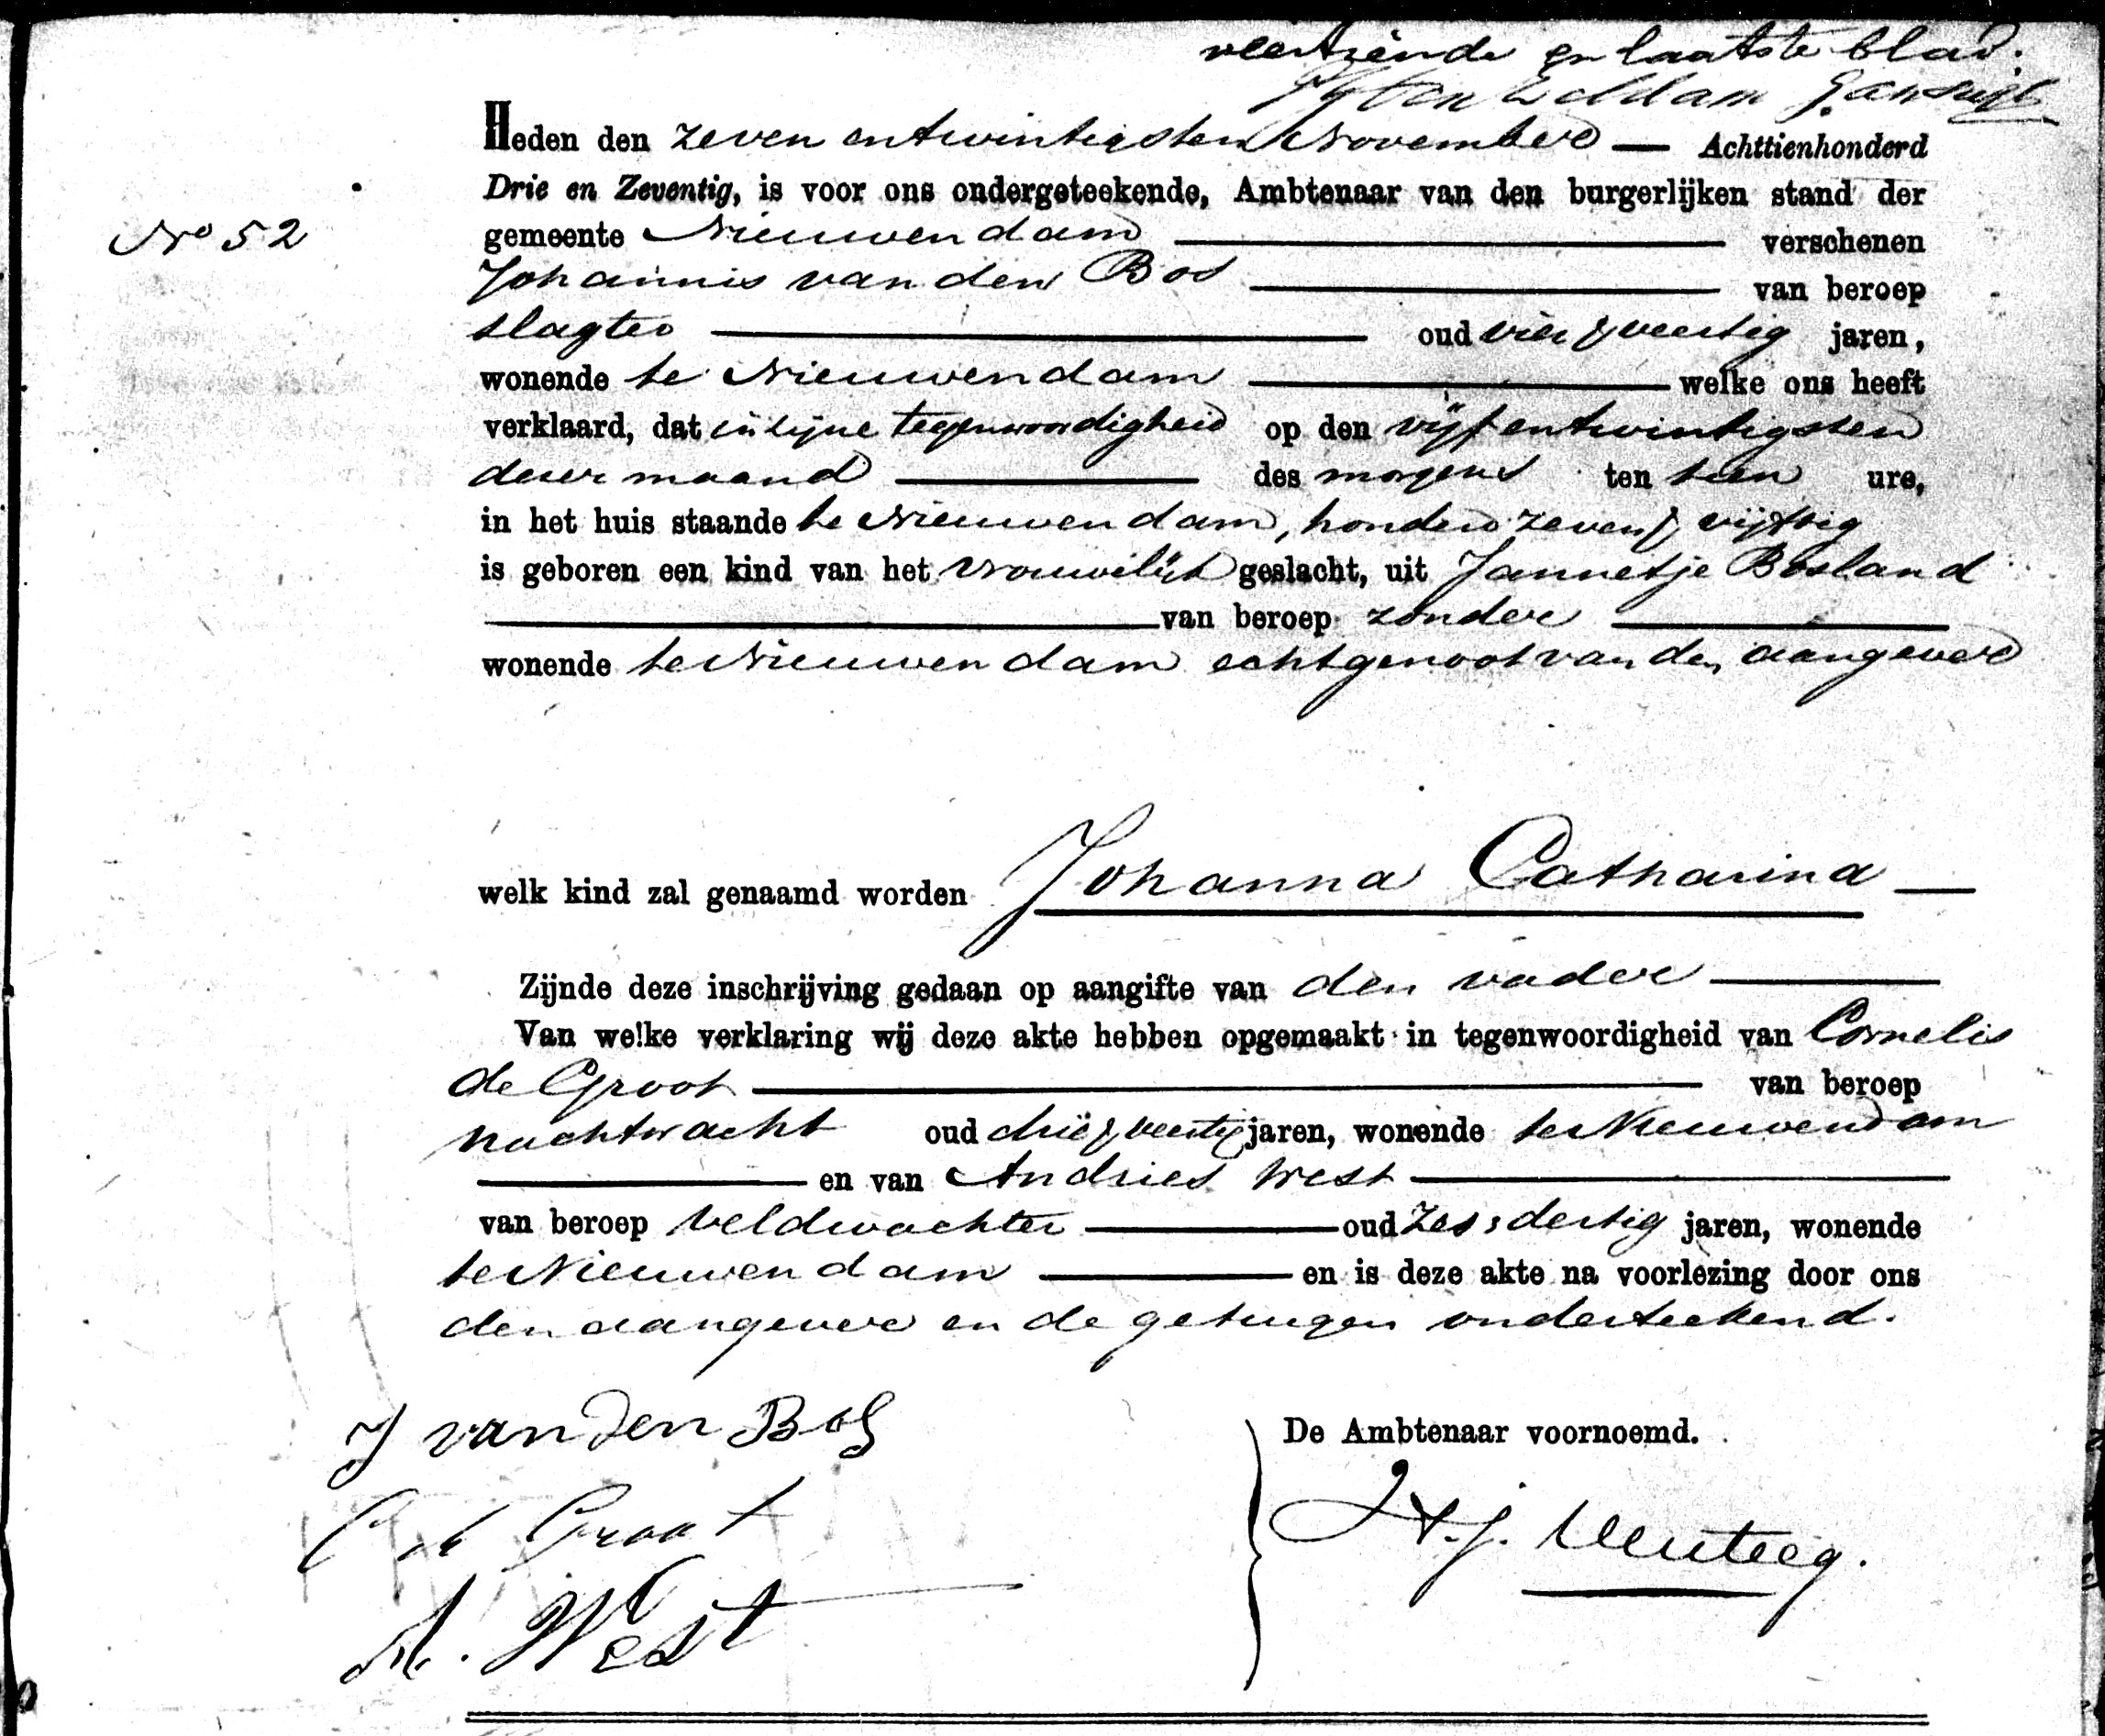 veertiende en laatste blad.
Heden den zeven entwintigsten November — Achttienhonderd
Drie en Zeventig, is voor ons ondergeteekende, Ambtenaar van den burgerlijken stand der
No 52
gemeente Nieuwendam verschenen
Johannis van den Bos van beroep
slagter oud vier & veertig jaren,
wonende te Nieuwendam welke ons heeft
verklaard, dat in zijne tegenwoordigheid op den vijf entwintigsten
dezer maand des morgens ten tien ure,
in het huis staande te Nieuwendam, honderd zeven & vijftig
is geboren een kind van het vrouwelijk geslacht, uit Jannetje Bosland
van beroep zonder
wonende te Nieuwendam echtgenoot van den aangever
welk kind zal genaamd worden Johanna Catharina —
Zijnde deze inschrijving gedaan op aangifte van den vader
Van welke verklaring wij deze akte hebben opgemaakt in tegenwoordigheid van Cornelis
de Groot van beroep
nachtwacht oud drie & veertig jaren, wonende te Nieuwendam
en van Andries West
van beroep veldwachter oud zes & dertig jaren, wonende
te Nieuwendam en is deze akte na voorlezing door ons
den aangever en de getuigen onderteekend.
J van den Bos
De Ambtenaar voornoemd.
C de Groot
A. West